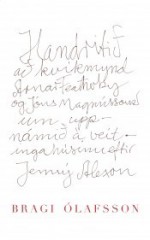 Handritið
að kvikmynd
Arnar Featherby
og Jóns Magnússonar
um upp-
námið á veit-
ingahúsinu eftir
Jenný Alson
BRAGI ÓLAFSSON